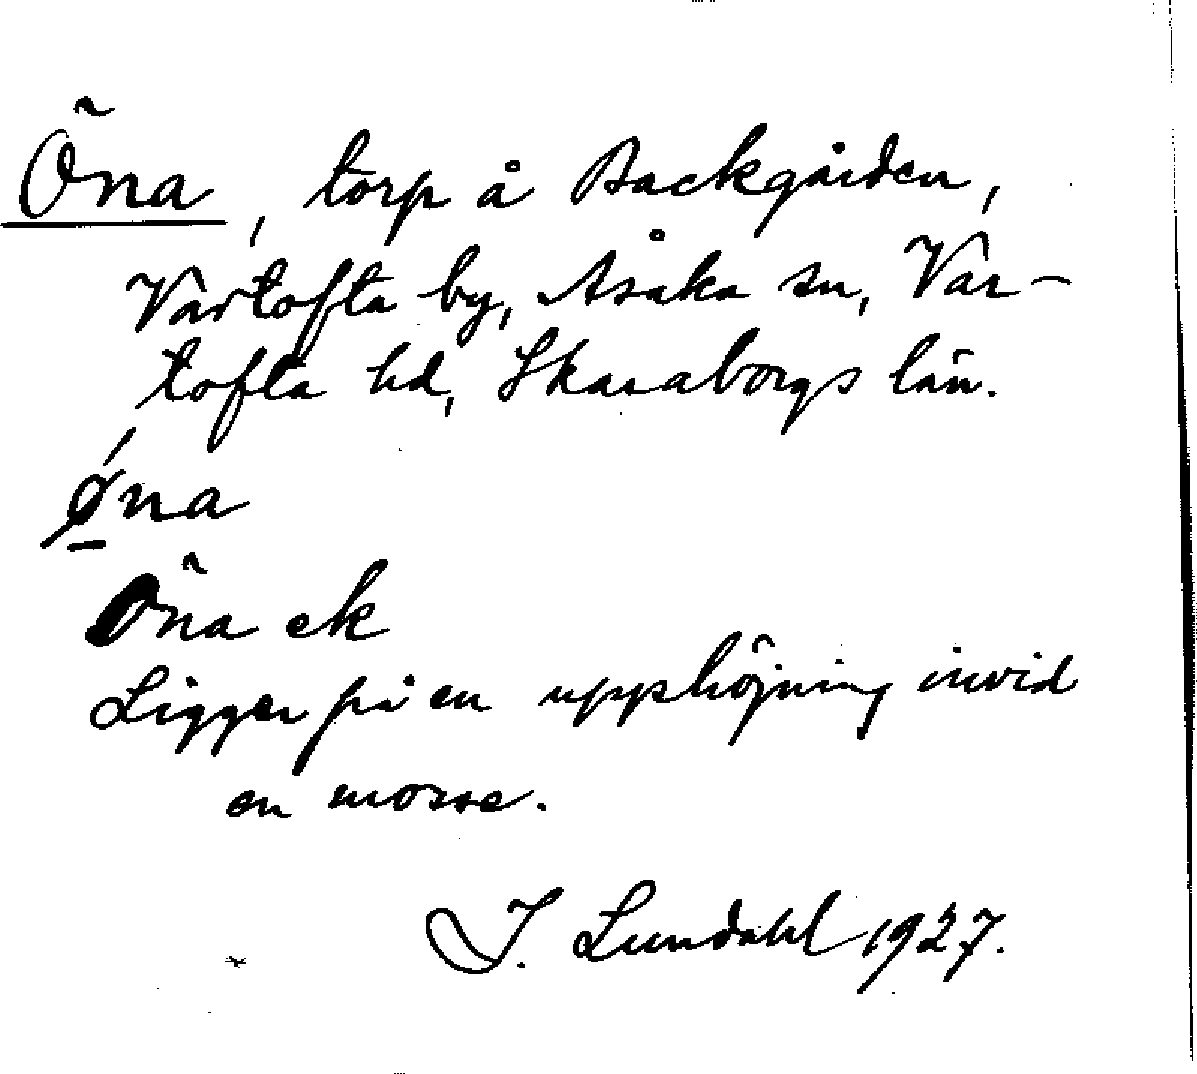 Öna, torp å Backgården,
Vartofta by, Åsaka sn, Var-
tofta hd, Skaraborgs län.
ǿna
Öna ek
Ligger på en upphöjning invid
en mosse.
I. Lundahl 1927.